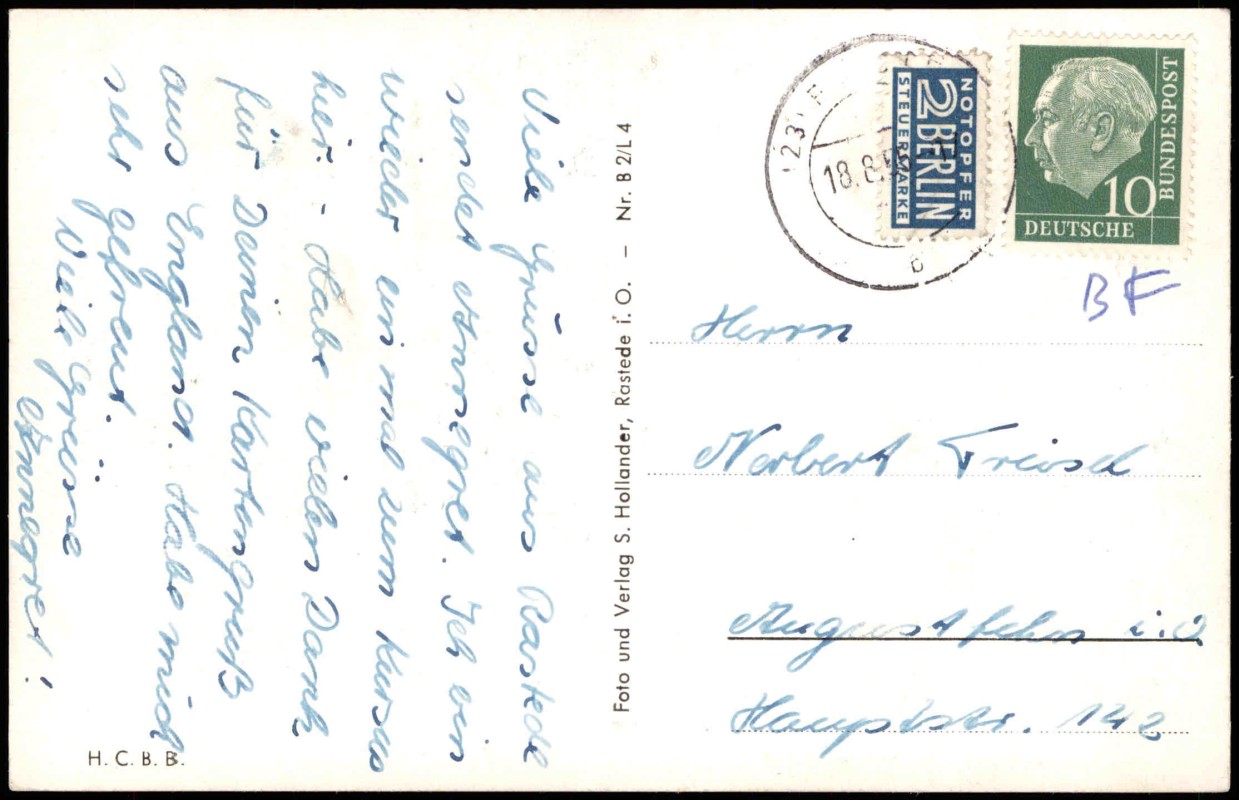 Viele Grüsse aus Rastede
sendet Annegret. Ich bin
wieder einmal zum Kursus
hier. – Habe vielen Dank
für Deinen Kartengruß
aus England. Habe mich
sehr gefreut.
Viele Grüsse
Annegret!
H. C. B. B.
Foto und Verlag S. Hollander, Rastede i. O. – Nr. B 2/L 4
(23)
18.8.
B
NOTOPFER
2 BERLIN
STEUERMARKE
BUNDESPOST
10
DEUTSCHE
BF
Herrn
Norbert
Augustfehn i.O
Hauptstr. 142